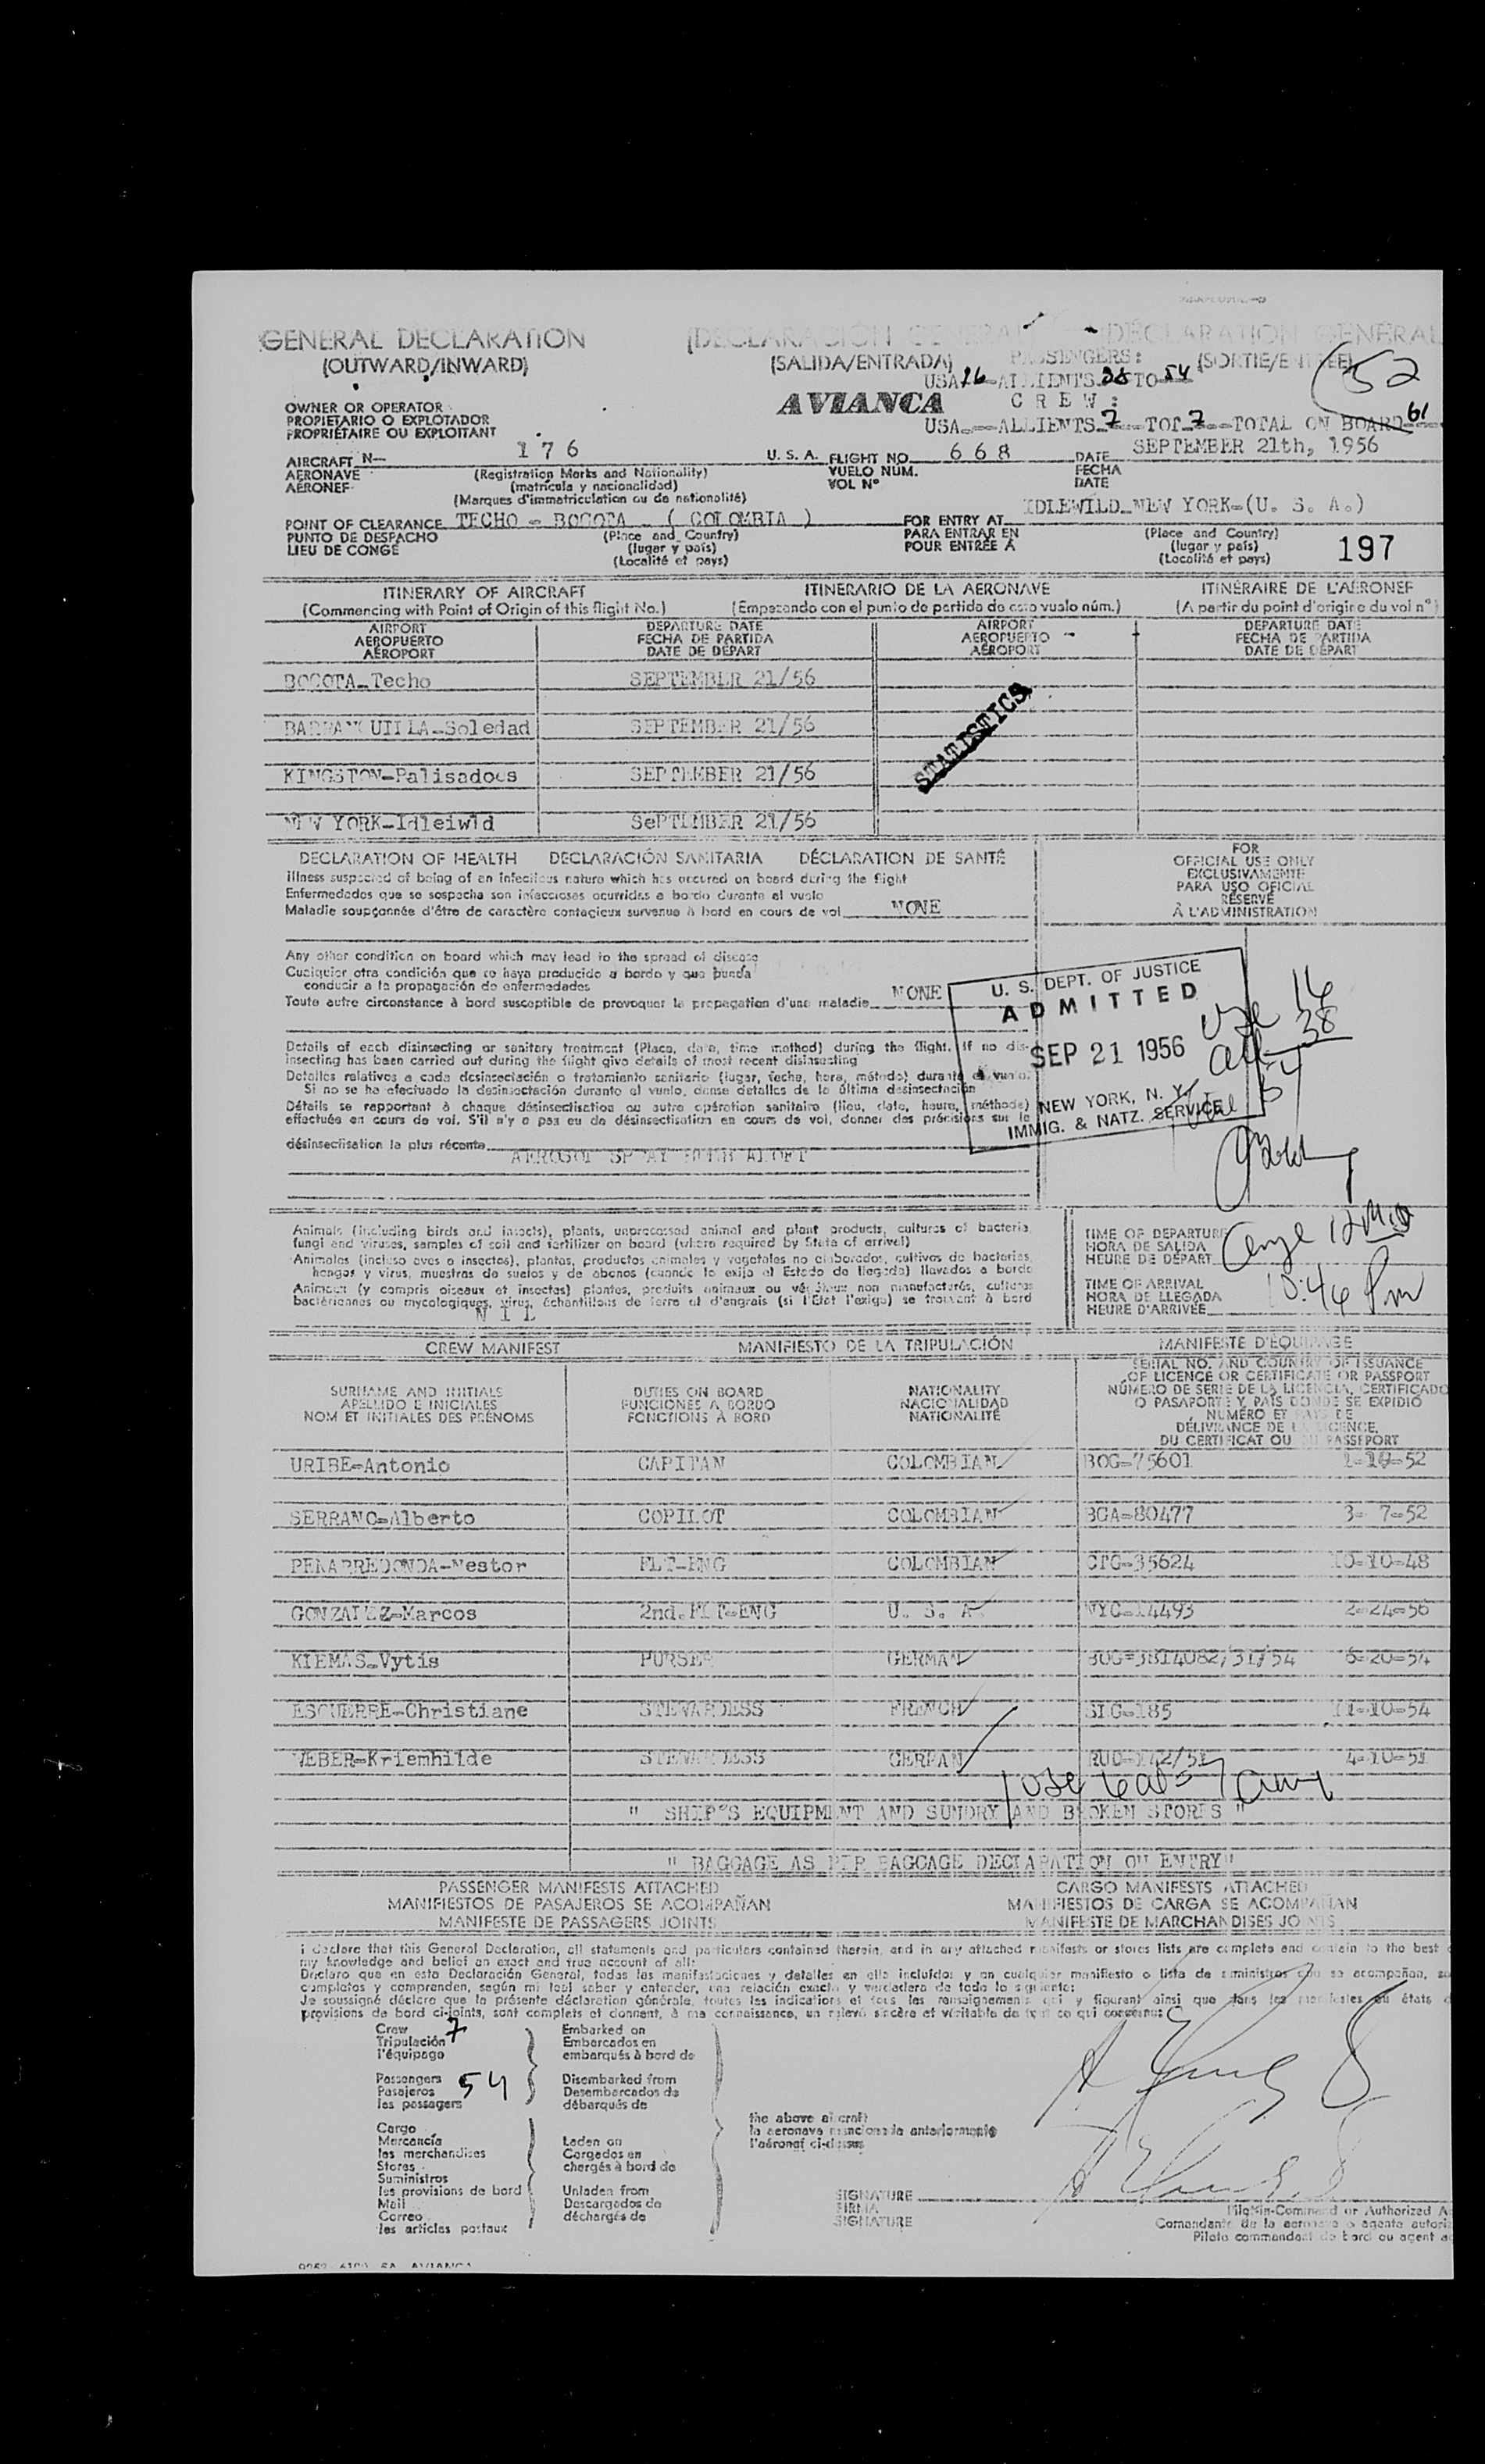 GENERAL DECLARATION (DECLARACIÓN GENERAL - DÉCLARATION GENERAL
(OUTWARD/INWARD) (SALIDA/ENTRADA) PASSENGERS: (SORTIE/ENTRÉE)
52
USA 16 ALLIENTS 38 TO 54
AVIANCA CREW:
USA ALLIENTS 7 TOT 7 TOTAL ON BOARD 61
OWNER OR OPERATOR
PROPIETARIO O EXPLOTADOR
PROPRIÉTAIRE OU EXPLOITANT
AIRCRAFT N- 176 U. S. A. FLIGHT NO. 668 DATE SEPTEMBER 21th, 1956
AERONAVE (Registration Marks and Nationality) VUELO NUM. FECHA
AÉRONEF (matrícula y nacionalidad) VOL N° DATE
(Marques d'immatriculation ou de nationalité)
POINT OF CLEARANCE TECHO - BOGOTA - ( COLOMBIA ) FOR ENTRY AT IDLEWILD-NEW YORK-(U. S. A.)
PUNTO DE DESPACHO (Place and Country) PARA ENTRAR EN (Place and Country)
LIEU DE CONGÉ (lugar y país) POUR ENTRÉE À (lugar y país) 197
(Localité et pays) (Localité et pays)
ITINERARY OF AIRCRAFT ITINERARIO DE LA AERONAVE ITINÉRAIRE DE L'AÉRONEF
(Commencing with Point of Origin of this flight No.) (Empezando con el punto de partida de este vuelo núm.) (A partir du point d'origine du vol n°)
AIRPORT DEPARTURE DATE AIRPORT DEPARTURE DATE
AEROPUERTO FECHA DE PARTIDA AEROPUERTO FECHA DE PARTIDA
AÉROPORT DATE DE DÉPART AÉROPORT DATE DE DÉPART
BOGOTA-Techo SEPTEMBER 21/56
BARRANQUILLA-Soledad SEPTEMBER 21/56
KINGSTON-Palisadoes SEPTEMBER 21/56
NEW YORK-Idleiwld SePTEMBER 21/56
STATISTICS
DECLARATION OF HEALTH DECLARACIÓN SANITARIA DÉCLARATION DE SANTÉ
FOR
OFFICIAL USE ONLY
EXCLUSIVAMENTE
PARA USO OFICIAL
RÉSERVÉ
À L'ADMINISTRATION
Illness suspected of being of an infectious nature which has occured on board during the flight
Enfermedades que se sospecha son infecciosas ocurridas a bordo durante el vuelo
Maladie soupçonnée d'être de caractère contagieux survenue à bord en cours de vol NONE
Any other condition on board which may lead to the spread of disease
Cualquier otra condición que se haya producido a bordo y que pueda
conducir a la propagación de enfermedades
Toute autre circonstance à bord susceptible de provoquer la propagation d'une maladie NONE
U. S. DEPT. OF JUSTICE
ADMITTED
SEP 21 1956
NEW YORK, N. Y.
IMMIG. & NATZ. SERVICE
16
38
54
Details of each disinsecting or sanitary treatment (Place, date, time method) during the flight. If no dis-
insecting has been carried out during the flight give details of most recent disinsecting
Detalles relativos a cada desinsectación o tratamiento sanitario (lugar, fecha, hora, método) durante el vuelo.
Si no se ha efectuado la desinsectación durante el vuelo, dense detalles de la última desinsectación
Détails se rapportant à chaque désinsectisation ou autre opération sanitaire (lieu, date, heure, méthode)
effectuée en cours de vol. S'il n'y a pas eu de désinsectisation en cours de vol, donner des précisions sur la
désinsectisation la plus récente AEROSOL SPRAY BOMB ALOFT
Animals (including birds and insects), plants, unprocessed animal and plant products, cultures of bacteria,
fungi and viruses, samples of soil and fertilizer on board (where required by State of arrival)
Animales (incluso aves o insectos), plantas, productos animales y vegetales no elaborados, cultivos de bacterias,
hongos y virus, muestras de suelos y de abonos (cuando lo exija el Estado de llegada) llevados a bordo
Animaux (y compris oiseaux et insectes) plantes, produits animaux ou végétaux non manufacturés, cultures
bactériennes ou mycologiques, virus, échantillons de terre et d'engrais (si l'État l'exige) se trouvant à bord
NIL
TIME OF DEPARTURE
HORA DE SALIDA
HEURE DE DÉPART
TIME OF ARRIVAL
HORA DE LLEGADA 10:46 Pm
HEURE D'ARRIVÉE
CREW MANIFEST MANIFIESTO DE LA TRIPULACIÓN MANIFESTE D'ÉQUIPAGE
SURNAME AND INITIALS DUTIES ON BOARD NATIONALITY SERIAL NO. AND COUNTRY OF ISSUANCE
APELLIDO E INICIALES FUNCIONES A BORDO NACIONALIDAD OF LICENCE OR CERTIFICATE OR PASSPORT
NOM ET INITIALES DES PRÉNOMS FONCTIONS À BORD NATIONALITÉ NÚMERO DE SERIE DE LA LICENCIA, CERTIFICADO
O PASAPORTE Y PAÍS DONDE SE EXPIDIÓ
NUMÉRO ET PAYS DE
DÉLIVRANCE DE LA LICENCE,
DU CERTIFICAT OU DU PASSEPORT
URIBE-Antonio CAPITAN COLOMBIAN BOG-75601 1-10-52
SERRANO-Alberto COPILOT COLOMBIAN BGA-80477 3- 7-52
PENARREDONDA-Nestor FLT-ENG COLOMBIAN CTG-35624 10-10-48
GONZALEZ-Marcos 2nd.FLT-ENG U. S. A. NYC-14493 2-24-56
KIEMAS-Vytis PURSER GERMAN BOG-3814082/31/54 6-20-54
ESCUERRE-Christiane STEWARDESS FRENCH SLG-185 11-10-54
WEBER-Kriemhilde STEWARDESS GERMAN RUD-142/51 4-10-51
" SHIP"S EQUIPMENT AND SUNDRY AND BROKEN STORES "
" BAGGAGE AS PER BAGGAGE DECLARATION ON ENTRY"
PASSENGER MANIFESTS ATTACHED CARGO MANIFESTS ATTACHED
MANIFIESTOS DE PASAJEROS SE ACOMPAÑAN MANIFIESTOS DE CARGA SE ACOMPAÑAN
MANIFESTE DE PASSAGERS JOINTS MANIFESTE DE MARCHANDISES JOINTS
I declare that this General Declaration, all statements and particulars contained therein, and in any attached manifests or stores lists are complete and contain to the best
my knowledge and belief an exact and true account of all:
Declaro que en esta Declaración General, todas las manifestaciones y detalles en ella incluídos y en cualquier manifiesto o lista de suministros que se acompañan,
completos y comprenden, según mi leal saber y entender, una relación exacta y verdadera de todo lo siguiente:
Je soussigné déclare que la présente déclaration générale, toutes les indications et tous les renseignements qui y figurent ainsi que dans les manifestes ou états
provisions de bord ci-joints, sont complets et donnent, à ma connaissance, un relevé sincère et véritable de tout ce qui concerne:
Crew 7 Embarked on
Tripulación Embarcados en
l'équipage embarqués à bord de
Passengers 54 Disembarked from
Pasajeros Desembarcados de
les passagers débarqués de
the above aircraft
la aeronave mencionada anteriormente
l'aéronef ci-dessus
Cargo
Mercancía Laden on
les marchandises Cargados en
Stores chargés à bord de
Suministros
les provisions de bord Unladen from
Mail Descargados de
Correo déchargés de
les articles postaux
SIGNATURE
FIRMA
SIGNATURE
Pilot-in-Command or Authorized A
Comandante de la aeronave o agente autoriz
Pilote commandant de bord ou agent a